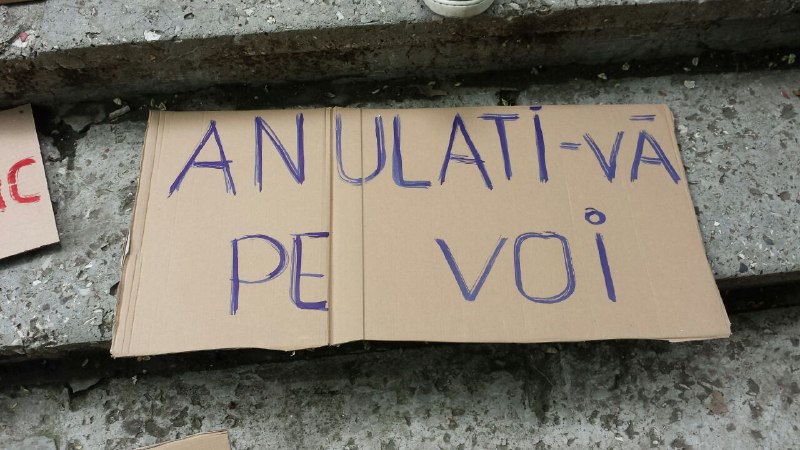 ANULATi-VĂ
PE VOi
IC